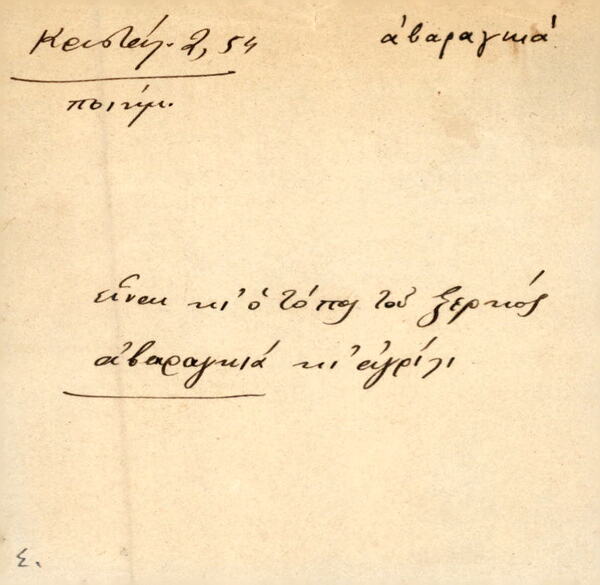 Κρυστάλ. 2, 54
ἀβαραγκιά
ποιημ.
εἶναι κι' ὁ τόπος τοῦ ξερκός
ἀβαραγκιά κι' ἀγρίλι
Σ.